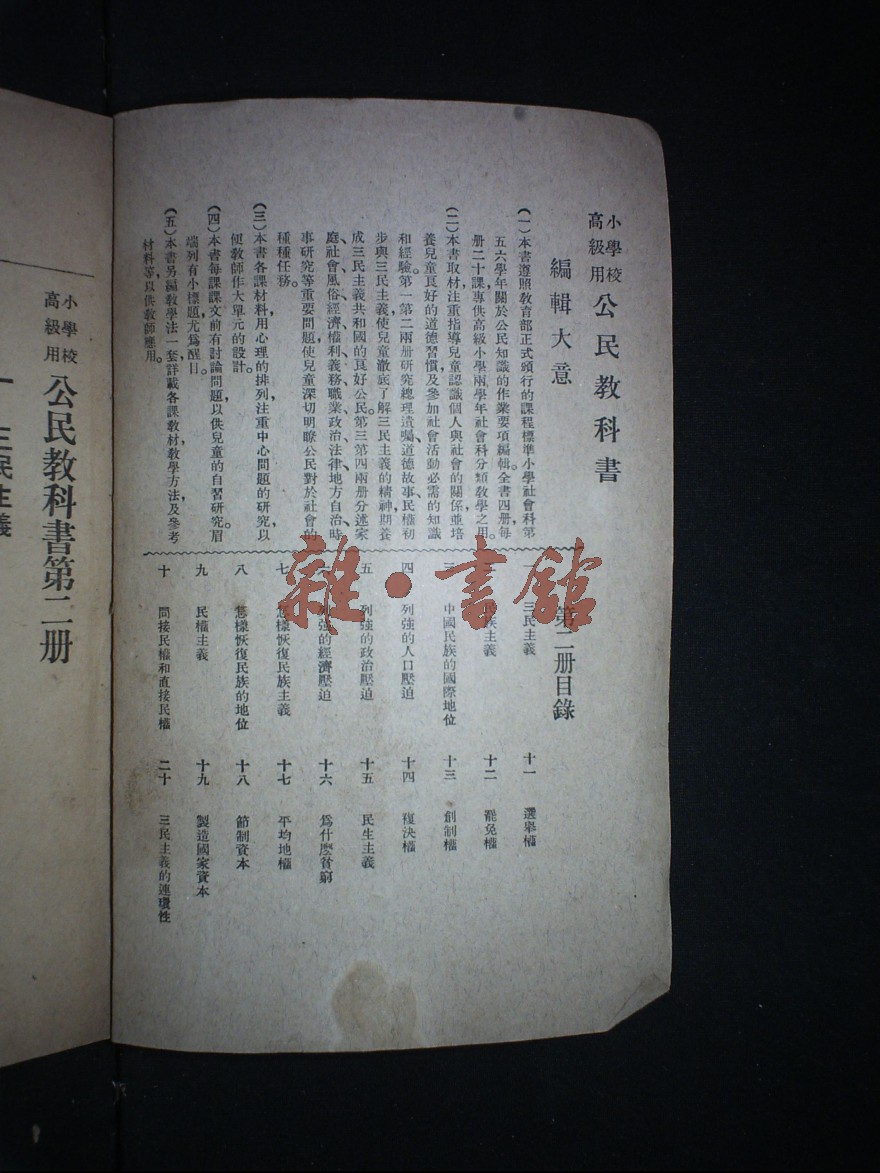 小學校
高級用
公民教科書
編輯大意
(一)本書遵照教育部正式頒行的課程標準小學社會科第
五六學年關於公民知識的作業要項編輯。全書四册,每
册二十課,專供高級小學兩學年社會科分類教學之用。
(二)本書取材注重指導兒童認識個人與社會的關係,並培
養兒童良好的道德習慣,及參加社會活動必需的知識
和經驗。第一第二兩册研究總理遺囑、道德故事、民權初
步與三民主義,使兒童澈底了解三民主義的精神,期養
成三民主義共和國的良好公民。第三第四兩册分述家
庭、社會、風俗、經濟、權利義務、職業、政治、法律、地方自治、時
事研究等重要問題,使兒童深切明瞭公民對於社會的
種種任務。
(三)本書各課材料,用心理的排列,注重中心問題的研究,以
便教師作大單元的設計。
(四)本書每課課文前有討論問題,以供兒童的自習研究。眉
端列有小標題,尤爲醒目。
(五)本書另編教學法一套,詳載各課教材教學方法及參考
材料等,以供教師應用。
第二册目錄
一 三民主義
二 民族主義
三 中國民族的國際地位
四 列強的人口壓迫
五 列強的政治壓迫
六 列強的經濟壓迫
七 怎樣恢復民族主義
八 怎樣恢復民族的地位
九 民權主義
十 間接民權和直接民權
十一 選舉權
十二 罷免權
十三 創制權
十四 複決權
十五 民生主義
十六 爲什麼貧窮
十七 平均地權
十八 節制資本
十九 製造國家資本
二十 三民主義的連環性
小學校
高級用
公民教科書第二册
一 三民主義
雜·書館